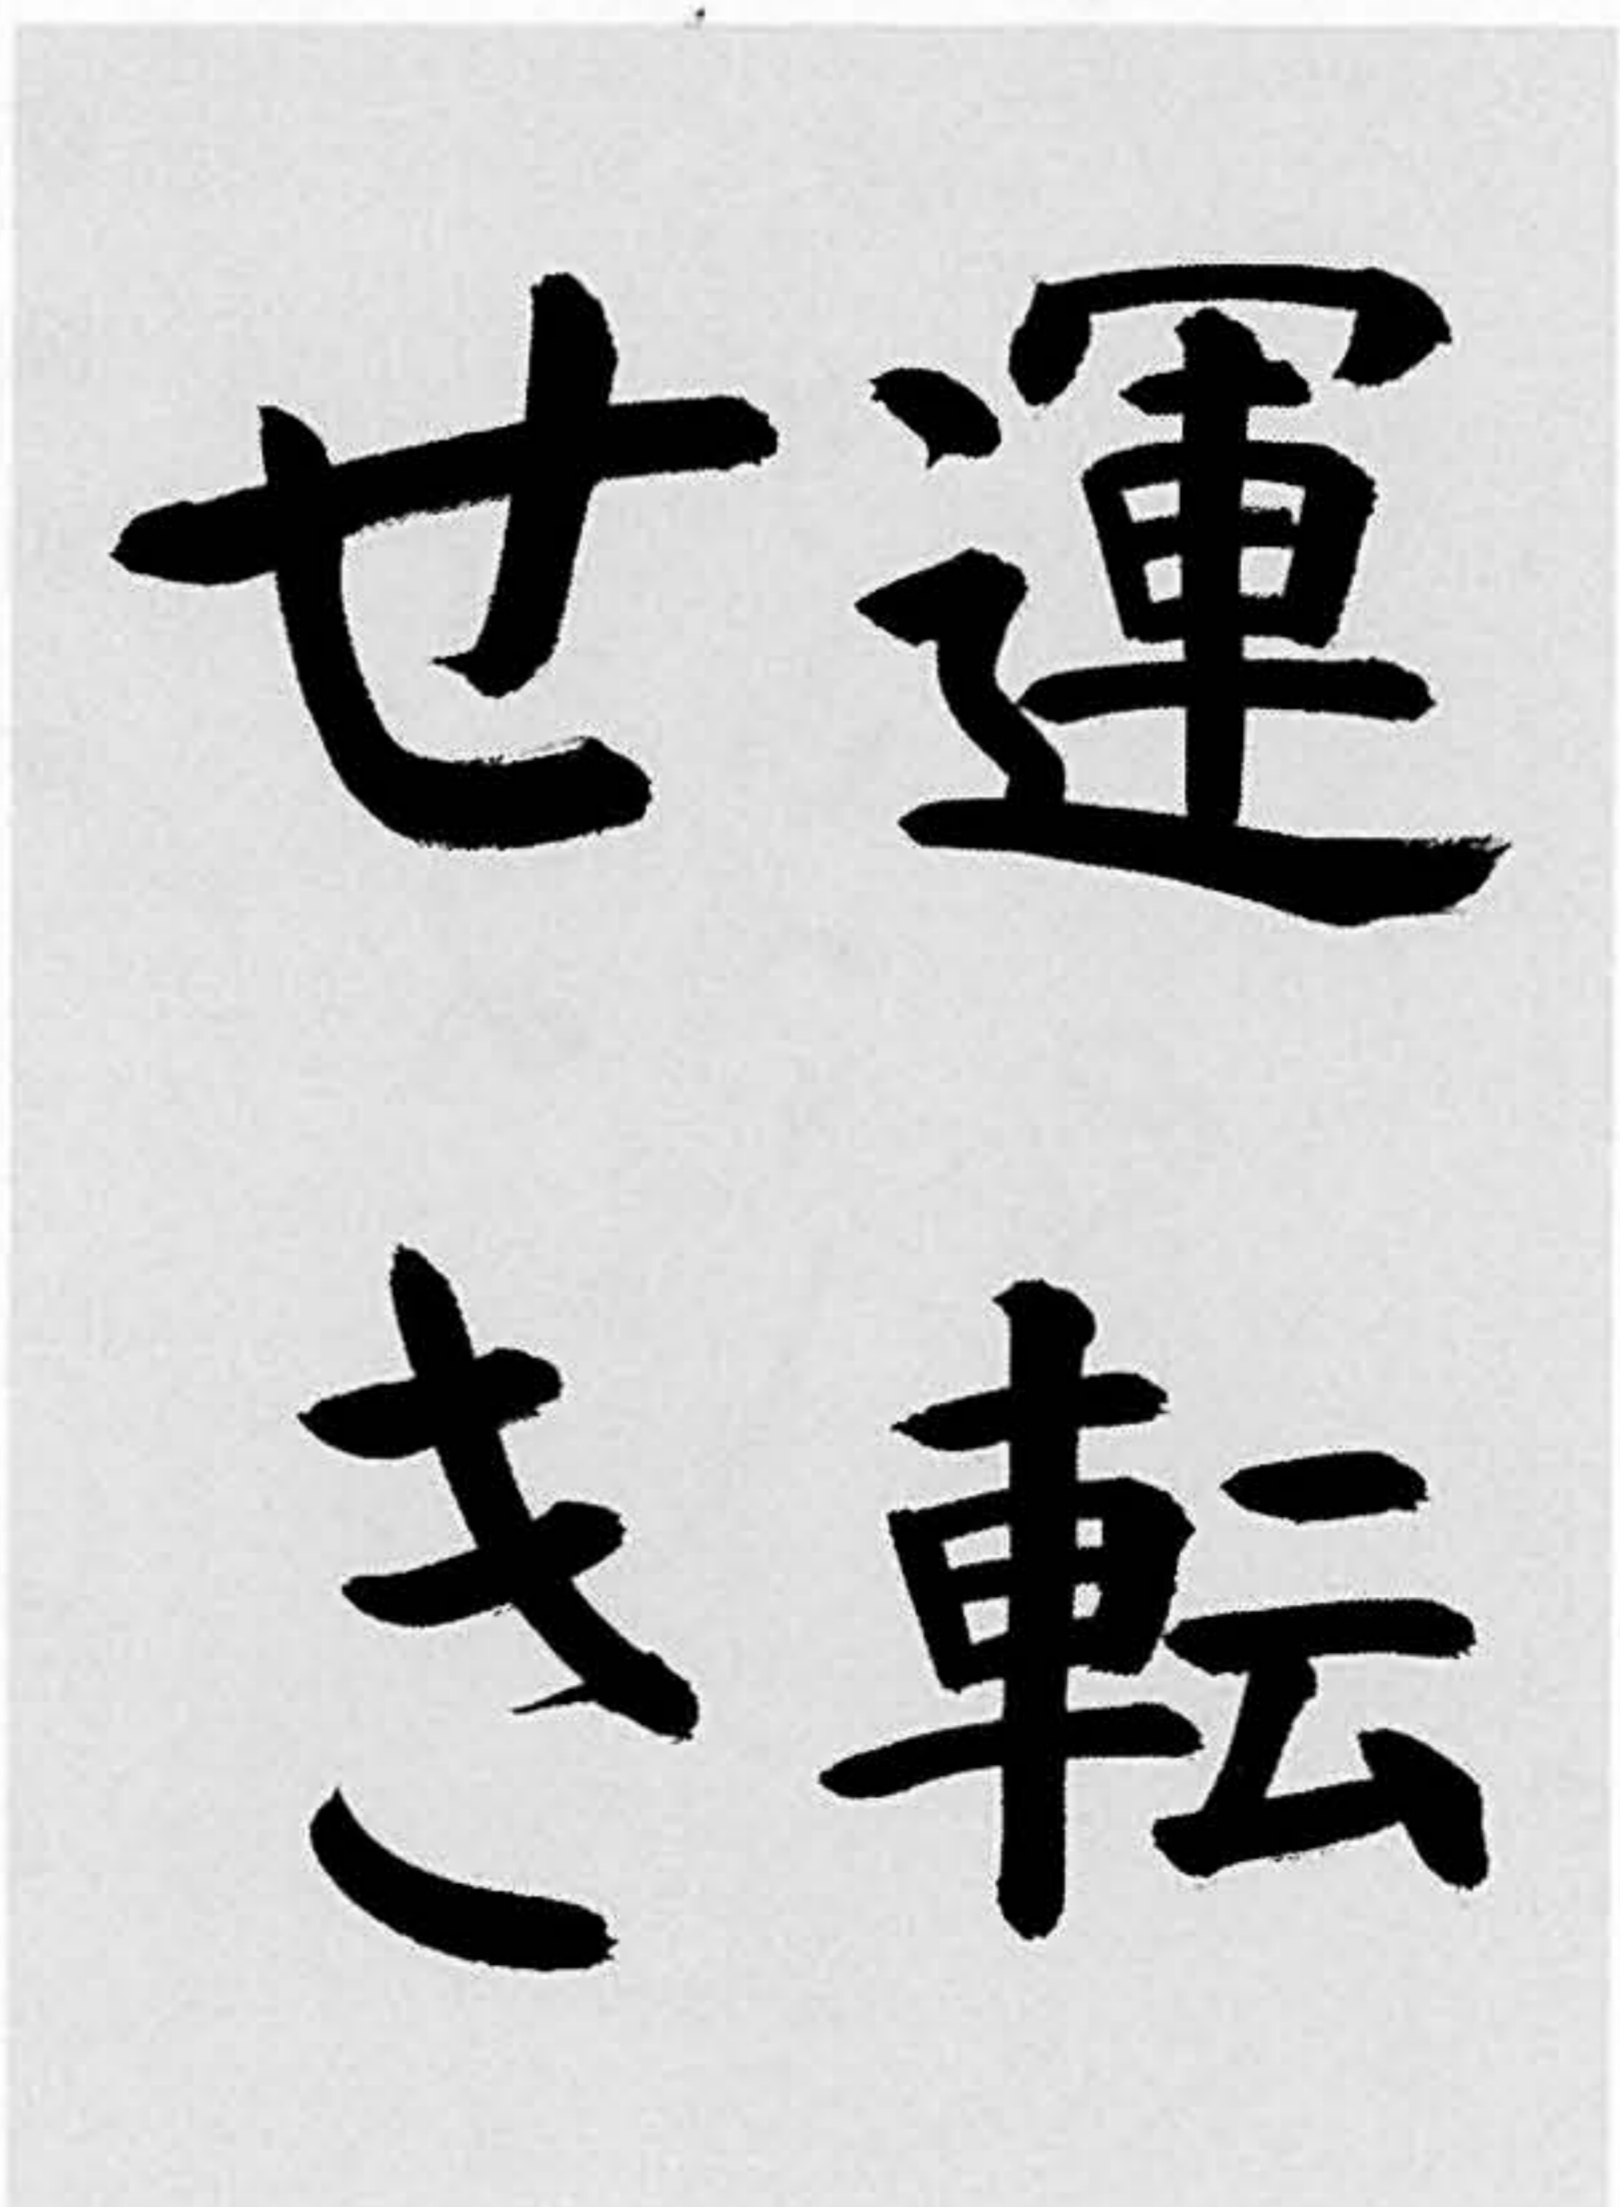 運転
せき